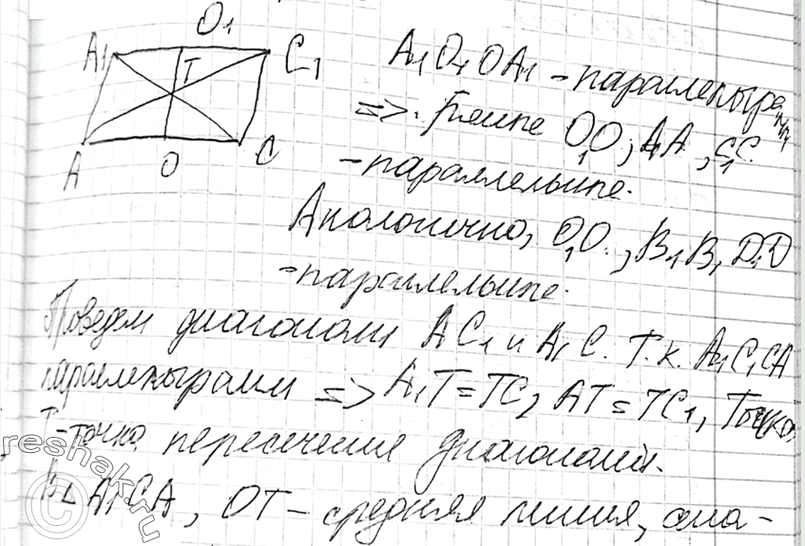 O₁
A₁ C₁
T
A O C
A₁O₁OA₁ - параллелограмм
=> Прямые O₁O; A₁A, C₁C.
- параллельные.
Аналогично, O₁O., B₁B, D₁D
- параллельные.
Проведем диагонали AC₁ и A₁C. Т.к. A₁C₁CA
параллелограмм => A₁T=TC, AT=TC₁, Точка
T-точка пересечения диагоналей.
В∠ A₁CA, OT - средняя линия, она-
reshak.ru